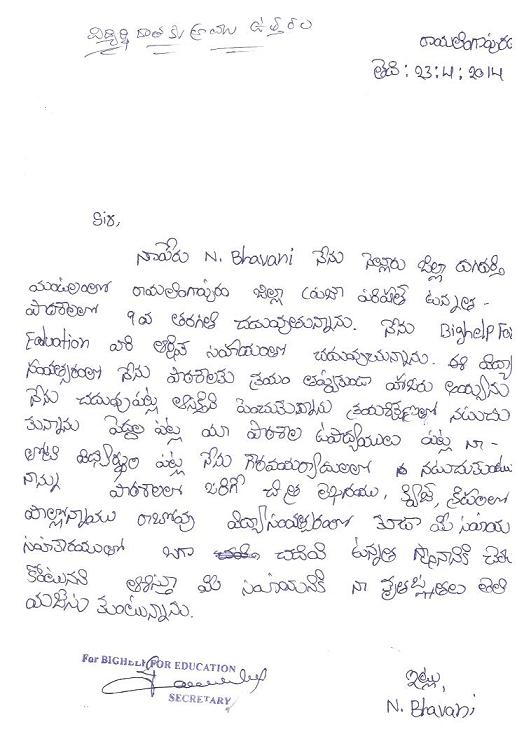 విద్యార్థి దాతకు వ్రాయు ఉత్తరం
రాయలింగాపురం
తేది : 23:4:2014
Sir,
నాపేరు N. Bhavani నేను నెల్లూరు జిల్లా దుగుర్తి
మండలంలో రాయలింగాపురం జిల్లా ప్రజా పరిషత్ ఉన్నత -
పాఠశాలలో 9వ తరగతి చదువుతున్నాను. నేను Bighelp For
Eduation వారి ఆర్థిక సహాయంతో చదువుచున్నాను. ఈ విద్యా
సంవత్సరంలో నేను పాఠశాలకు క్రమం తప్పకుండా హాజరు అయ్యాను
నేను చదువుపట్ల ఆసక్తిని పెంచుకున్నాను క్రమశిక్షణతో నడుచు
కున్నాను పెద్దల పట్ల మా పాఠశాల ఉపాధ్యాయులు పట్ల నా -
తోటి విద్యార్థుల పట్ల నేను గౌరవమర్యాదలతో నడుచుకుంటు
న్నాను పాఠశాలలో జరిగే చిత్ర లేఖనము, క్విజ్, క్రీడలలో
పాల్గొన్నాను రాబోవు విద్యాసంవత్సరంలో కూడా మీ సహాయ
సహకారములతో బాగా చదివి ఉన్నత స్థానానికి చేరు
కోగలనని ఆశిస్తూ మీ సహాయానికి నా కృతజ్ఞతలు తెలి
యజేసు కుంటున్నాను.
For BIGHELP FOR EDUCATION
SECRETARY
ఇట్లు,
N. Bhavani